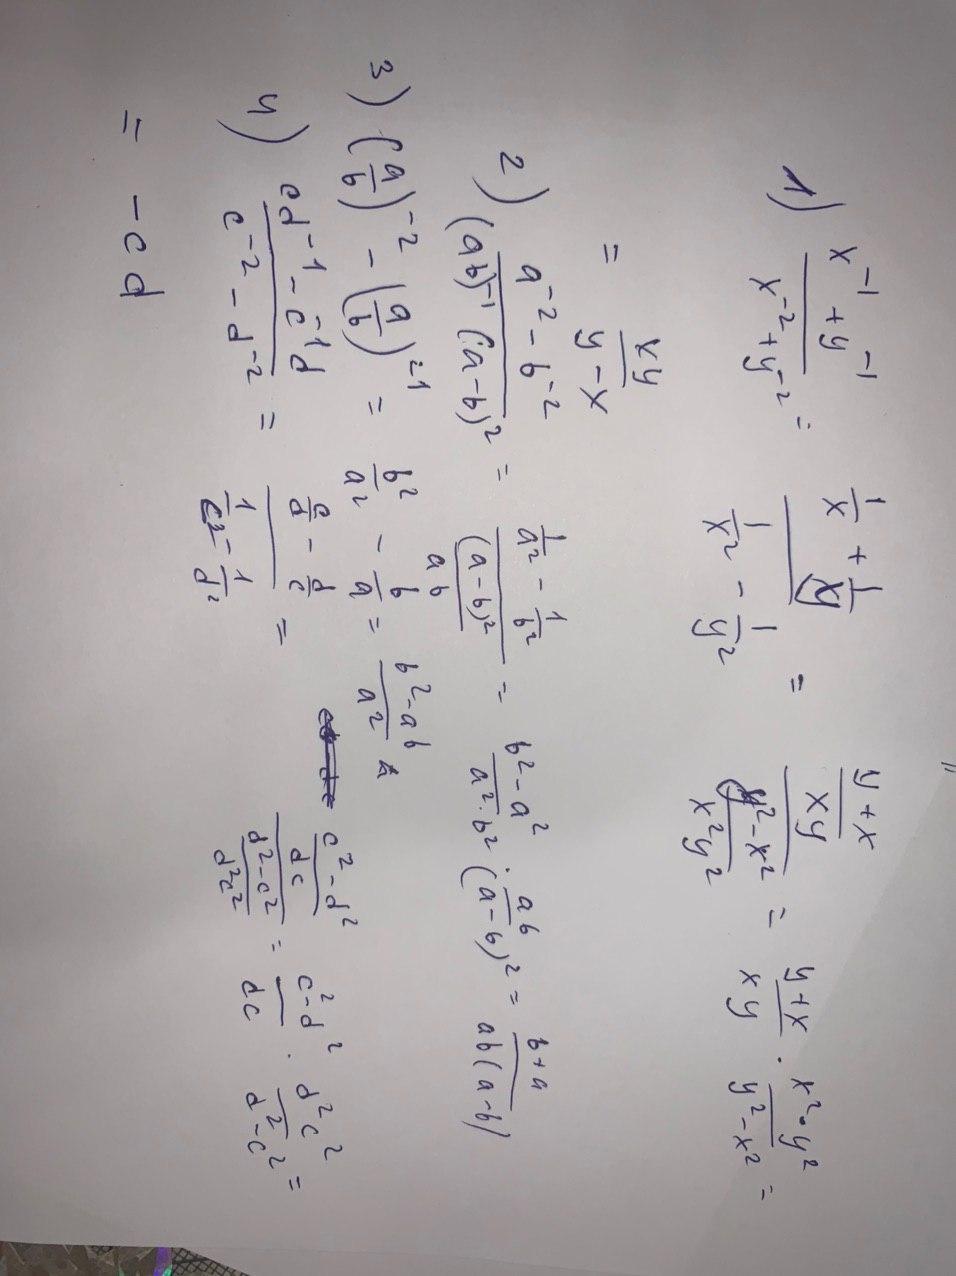 1) \frac{x^{-1} + y^{-1}}{x^{-2} + y^{-2}} = \frac{\frac{1}{x} + \frac{1}{xy}}{\frac{1}{x^2} - \frac{1}{y^2}} = \frac{\frac{y+x}{xy}}{\frac{y^2 - x^2}{x^2y^2}} = \frac{y+x}{xy} \cdot \frac{x^2 \cdot y^2}{y^2 - x^2} =
= \frac{xy}{y-x}
2) \frac{a^{-2} - b^{-2}}{(ab)^{-1} (a-b)^2} = \frac{\frac{1}{a^2} - \frac{1}{b^2}}{\frac{(a-b)^2}{ab}} = \frac{b^2 - a^2}{a^2 \cdot b^2} \cdot \frac{ab}{(a-b)^2} = \frac{b+a}{ab(a-b)}
3) (\frac{a}{b})^{-2} - (\frac{a}{b})^{-1} = \frac{b^2}{a^2} - \frac{b}{a} = \frac{b^2 - ab}{a^2}
4) \frac{cd^{-1} - c^{-1}d}{c^{-2} - d^{-2}} = \frac{\frac{c}{d} - \frac{d}{c}}{\frac{1}{c^2} - \frac{1}{d^2}} = \frac{\frac{c^2 - d^2}{dc}}{\frac{d^2 - c^2}{d^2c^2}} = \frac{c^2 - d^2}{dc} \cdot \frac{d^2c^2}{d^2 - c^2} =
= -cd